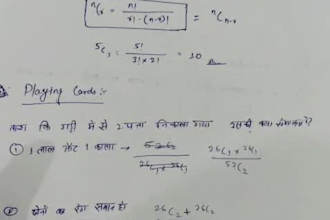 ⁿCᵣ = n! / r! · (n-r)! = ⁿCₙ₋ᵣ
⁵C₃ = 5! / 3! × 2! = 10
Playing Cards :-
ताश कि गड्डी में से 2 पत्ता निकाला गया
① 1 लाल और 1 काला → ²⁶C₁ × ²⁶C₁ / ⁵²C₂
② दोनों का रंग समान हो ²⁶C₂ + ²⁶C₂